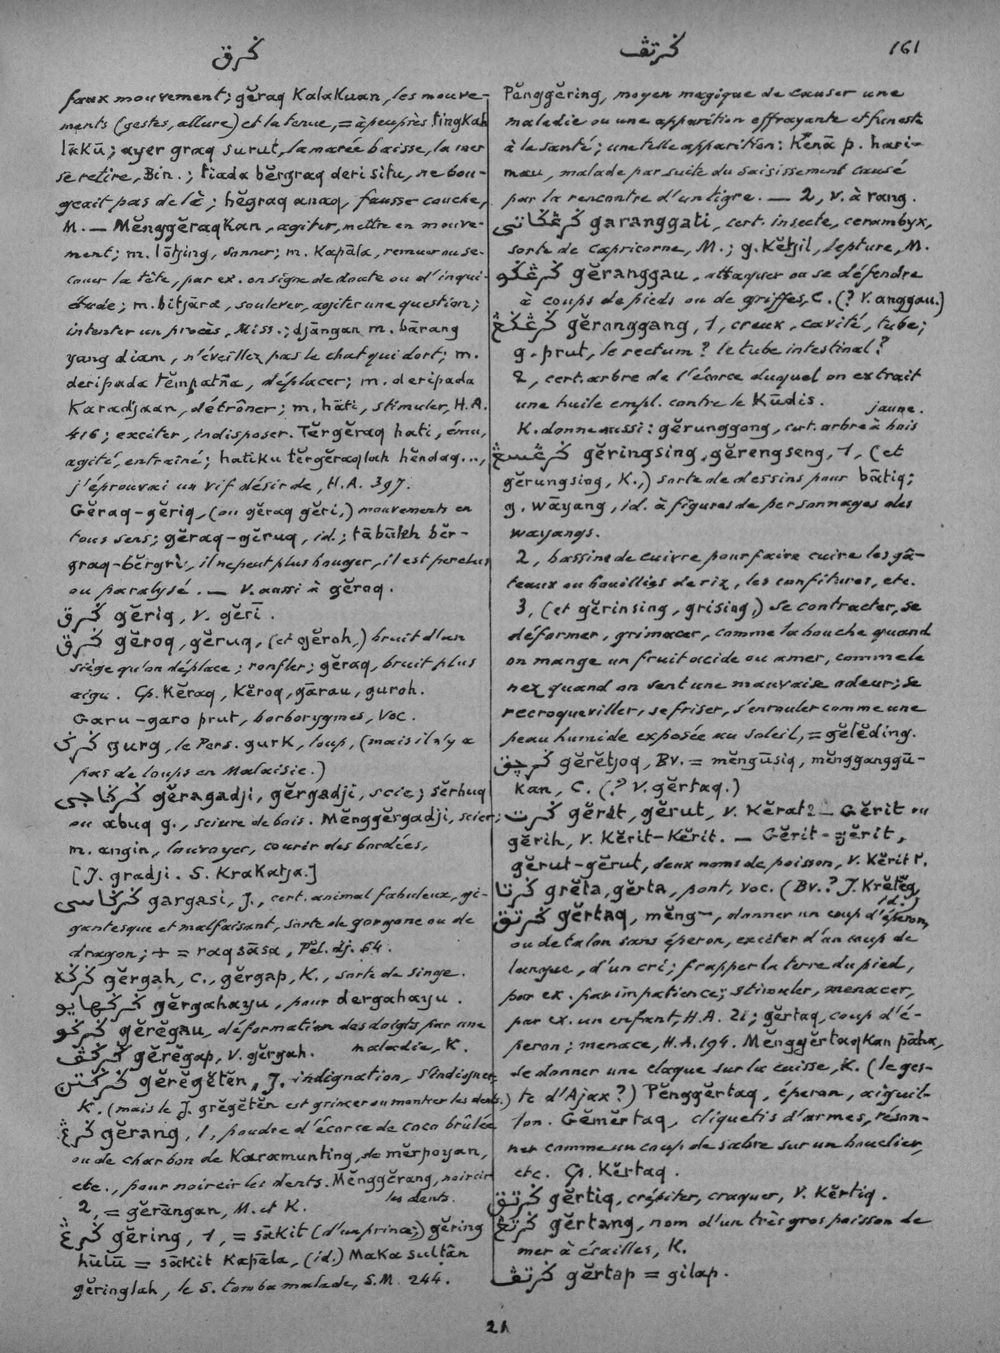 ݢرق
ݢرتڤ
161
faux mouvement; gĕraq Kalakuan, les mouve-
ments (gestes, allure) et la tenue, = à peu près tingkah
lākū; ayer graq surut, la marée baisse, la mer
se retire, Bin.; tiada bĕrgraq deri situ, ne bou-
geait pas de là; hĕgraq anaq, fausse couche,
M. — Mĕnggĕraqkan, agiter, mettre en mouve-
ment; m. lōtjing, sonner; m. Kapāla, remuer ou se-
couer la tête, par ex. en signe de doute ou d'inqui-
étude; m. bitjāra, soulever, agiter une question;
intenter un procès, Miss.; djāngan m. bārang
yang diam, n'éveillez pas le chat qui dort; m.
deripada tĕmpatña, déplacer; m. deripada
Karadjaan, détrôner; m. hāti, stimuler, H.A.
416; exciter, indisposer. Tĕrgĕraq hati, ému,
agité, entraîné; hatiku tĕrgĕraqlah hĕndaq...,
j'éprouvai un vif désir de, H.A. 397.
Gĕraq-gĕriq, (ou gĕraq gĕri,) mouvements en
tous sens; gĕraq-gĕruq, id.; tābūleh bĕr-
graq-bĕrgri, il ne peut plus bouger, il est perclus
ou paralysé. — V. aussi à gĕroq.
ݢرق gĕriq, V. gĕrī.
ݢرق gĕroq, gĕruq, (et gĕroh,) bruit d'un
siège qu'on déplace; ronfler; gĕraq, bruit plus
aigu. Cp. Kĕraq, Kĕroq, gārau, guroh.
Garu-garo prut, borborygmes, Voc.
ݢرݢ gurg, le Pers. gurk, loup, (mais il n'y a
pas de loups en Malaisie.)
ݢرݢاجي gĕragadji, gĕrgadji, scie; sĕrbuq
ou ābuq g., sciure de bois. Mĕnggĕrgadji, scier;
m. angin, louvoyer, courir des bordées,
[J. gradji. S. Krakatja.]
ݢرݢاسي gargasi, J., cert. animal fabuleux, gi-
gantesque et malfaisant, sorte de gorgone ou de
dragon; + = raqsāsa, Pĕl. dj. 64.
ݢرݢه gĕrgah, C., gĕrgap, K., sorte de singe.
ݢرݢهايو gĕrgahayu, pour dergahayu.
ݢرݢو gĕrĕgau, déformation des doigts, par une
maladie, K.
ݢرݢڤ gĕrĕgap, V. gĕrgah.
ݢرݢتن gĕrĕgĕtĕn, J. indignation, s'indigner,
K. (mais le J. grĕgĕtĕn est grincer ou montrer les dents.)
ݢرڠ gĕrang, 1, poudre d'écorce de coco brûlée
ou de charbon de Karamunting, de mĕrpoyan,
etc., pour noircir les dents. Mĕnggĕrang, noircir
les dents.
2, = gĕrāngan, M. et K.
ݢرڠ gĕring, 1, = sākit (d'un prince;) gĕring
hūlū = sākit Kapāla, (id.) Maka sultān
gĕringlah, le S. tomba malade, S.M. 244.
Pĕnggĕring, moyen magique de causer une
maladie ou une apparition effrayante et funeste
à la santé; une telle apparition: Kĕnā p. hari-
mau, malade par suite du saisissement causé
par la rencontre d'un tigre. — 2, V. à rang.
ݢرڠݢاتي garanggati, cert. insecte, cerambyx,
sorte de capricorne, M.; g. Kĕtjil, lepture, M.
ݢرڠݢو gĕranggau, attaquer ou se défendre
à coups de pieds ou de griffes, C. (? V. anggau.)
ݢرڠݢڠ gĕronggang, 1, creux, cavité, tube;
g. prut, le rectum? le tube intestinal?
2, cert. arbre de l'écorce duquel on extrait
une huile empl. contre le Kūdis.
K. donne aussi: gĕrunggong, cert. arbre à bois
jaune.
ݢرڠسڠ gĕringsing, gĕrengseng, 1, (et
gĕrungsing, K.,) sorte de dessins pour bātiq;
g. wāyang, id. à figures de personnages des
wayangs.
2, bassine de cuivre pour faire cuire les gâ-
teaux ou bouillies de riz, les confitures, etc.
3, (et gĕrinsing, grising,) se contracter, se
déformer, grimacer, comme la bouche quand
on mange un fruit acide ou amer, comme le
nez quand on sent une mauvaise odeur; se
recroqueviller, se friser, s'enrouler comme une
peau humide exposée au soleil, = gĕlĕding.
ݢرچق gĕrĕtjoq, Bv. = mĕngūsiq, mĕngganggū-
kan, C. (? V. gĕrtaq.)
ݢرت gĕrĕt, gĕrut, V. Kĕrat2. — Gĕrit ou
gĕrih, V. Kĕrit-Kĕrit. — Gĕrit-gĕrit,
gĕrut-gĕrut, deux noms de poisson, V. Kĕrit2.
ݢرتا grĕta, gĕrta, pont, Voc. (Bv.? J. Krĕtĕg,
id.)
ݢرتق gĕrtaq, mĕng~, donner un coup d'éperon,
ou de talon sans éperon, exciter d'un coup de
langue, d'un cri; frapper la terre du pied,
par ex. par impatience; stimuler, menacer,
par ex. un enfant, H.A. 21; gĕrtaq, coup d'é-
peron; menace, H.A. 194. Mĕnggĕrtaqkan pāha,
se donner une claque sur la cuisse, K. (le ges-
te d'Ajax?) Pĕnggĕrtaq, éperon, aiguil-
lon. Gĕmĕrtaq, cliquetis d'armes, réson-
ner comme un coup de sabre sur un bouclier,
etc. Cp. Kĕrtaq.
ݢرتق gĕrtiq, crépiter, craquer, V. Kĕrtiq.
ݢرتڠ gĕrtang, nom d'un très gros poisson de
mer à écailles, K.
ݢرتڤ gĕrtap = gilap.
21